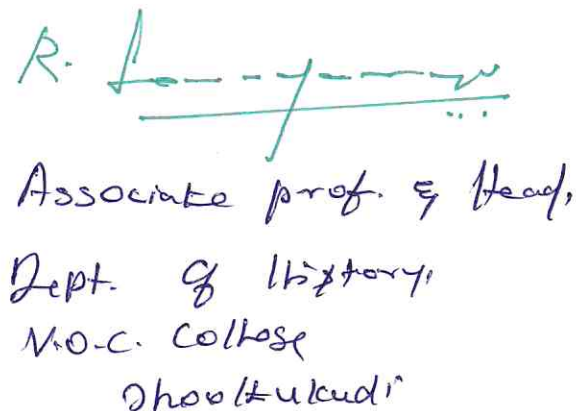 R.
Associate prof. & Head,
Dept. of History,
V.O.C. College
Thoothukudi